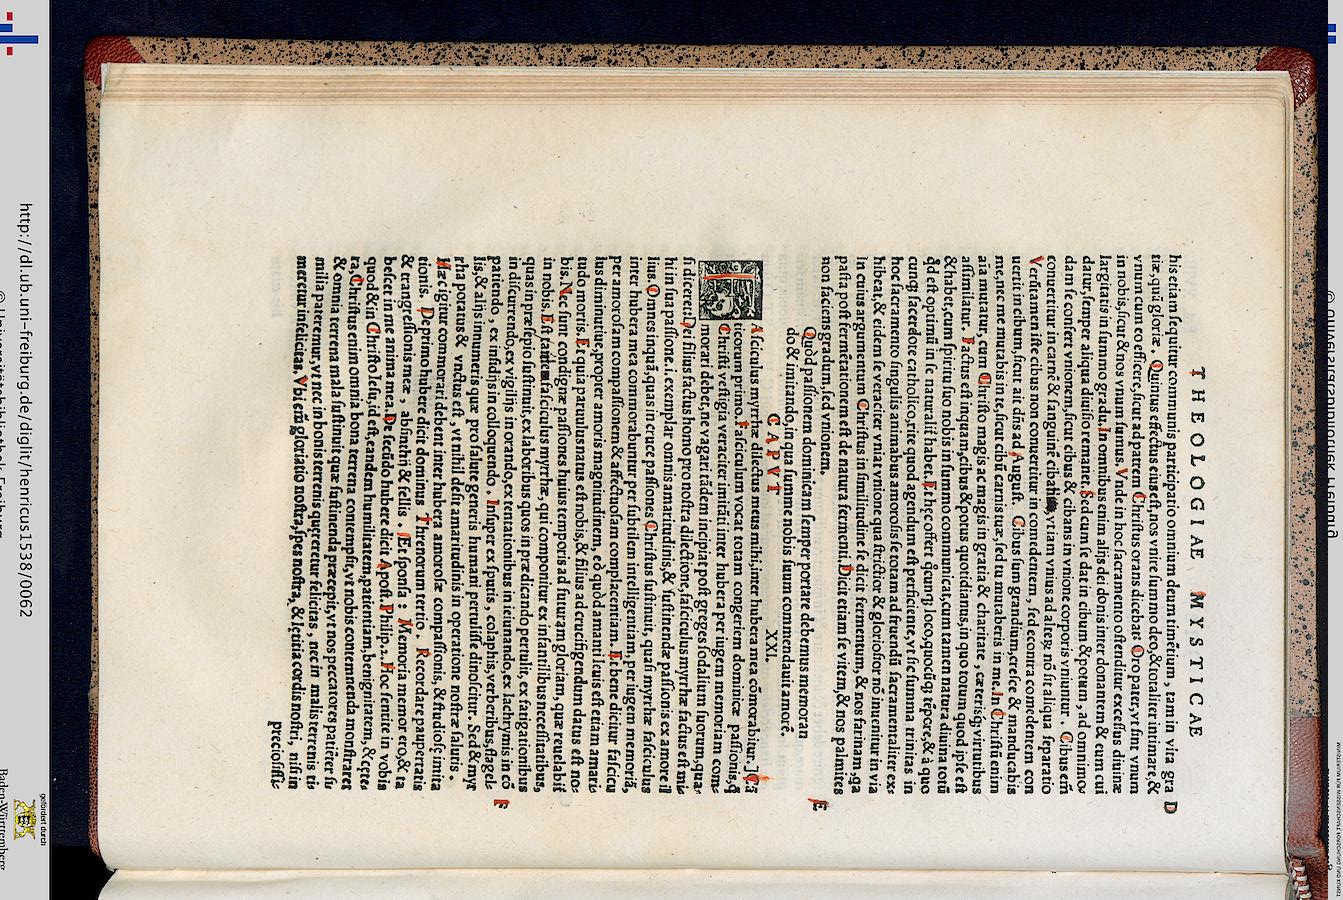 THEOLOGIAE MYSTICAE
his etiam sequitur communis participatio omnium deum timẽtium, tam in vita gra D
tiæ, qui gloriæ. Quintus effectus eius est, nos vnire summo deo, & totaliter intimare, &
vnum cum eo efficere, sicut ad patrem Christus orans dicebat: Oro pater, vt sint vnum
in nobis, sicut & nos vnum sumus. Vnde in hoc sacramento ostenditur excessus diuinæ
largitatis in summo gradu. In omnibus enim alijs dei donis inter donantem & eum cui
datur, semper aliqua diuisio remanet. Sed cum se dat in cibum & potum, ad omnimo-
dam se confert vnionem, sicut cibus & cibans in vnione corporis vniuntur. Cibus em̃
conuertitur in carnẽ & sanguinẽ cibati, vt iam vnius ad alterũ nõ sit aliqua separatio
Verũtamen iste cibus non conuertitur in comedentem, sed econtra comedentem con
uertit in cibum, sicut ait dñs ad August. Cibus sum grandium, cresce & manducabis
me, nec me mutabis in te, sicut cibũ carnis tuæ, sed tu mutaberis in me. In Christi enim
aia mutatur, cum Christo magis ac magis in gratia & charitate, cæterisq; virtutibus
assimilatur. Factus est inquam, cibus & potus quotidianus, in quo totum quod ipse est
& habet, cum spiritu suo nobis in summo communicat, cum tamen natura diuina totũ
qd est optimũ in se naturalit habet. Et hęc offert q̃cunq; loco, quocũq; tẽpore, & à quo
cunq; sacerdote catholico, rite quod agendum est perficiente, vt sic summa trinitas in
hoc sacramento singulis animabus amorosis se totam ad fruendũ sacramentaliter ex-
hibeat, & eidem se veraciter vniat vnione qua strictior & gloriosior nõ inuenitur in via
In cuius argumentum Christus in similitudine se dicit fermentum, & nos farinam, qa
pasta post fermẽtationem est de natura fermenti. Dicit etiam se vitem, & nos palmites
non faciens gradum, sed vnionem. E
CAPVT XXI.
Quòd passionem dominicam semper portare debemus memoran
do & imitando, in qua summe nobis suum commendauit amorẽ.
FAsciculus myrrhæ dilectus meus mihi, inter hubera mea cõmorabitur.
ticorum primo. Fasciculum vocat totam congeriem dominicæ passionis, q̃
Christi vestigia veraciter imitãti inter hubera per iugem memoriam com-
morari debet, ne vagari tãdem incipiat post greges sodalium suorum, qua-
si diceret: Dei filius factus homo pro nostra dilectione, fasciculus myrrhæ factus est mi-
hi in sua passione. i. exemplar omnis amaritudinis, & sustinendæ passionis ex amore il
lius. Omnes inquã, quas in cruce passiones Christus sustinuit, quasi myrrhæ fasciculus
inter hubera mea commorabuntur per subtilem intelligentiam, per iugem memoriã,
per amorosam compassionem & affectuosam complacentiam. Et bene dicitur fascicu
lus diminutiue, propter amoris magnitudinem, eò quod amanti leuis est etiam amari-
tudo mortis. Et quia paruulus natus est nobis, & filius ad crucifigendum datus est no-
bis. Nec sunt condignæ passiones huius temporis ad futuram gloriam, quæ reuelabit
in nobis. Est tamen fasciculus myrrhæ, qui componitur ex infantilibus necessitatibus,
quas in præsepio sustinuit, ex laboribus quos in prædicando pertulit, ex fatigationibus
in discurrendo, ex vigilijs in orando, ex tentationibus in ieiunando, ex lachrymis in cõ F
patiendo, ex insidijs in colloquendo. Insuper ex sputis, colaphis, verberibus, flagel-
lis, & alijs innumeris quæ pro salute generis humani pertulisse dinoscitur. Sed & myr
rha potatus & vnctus est, vt nihil desit amaritudinis in operatione nostræ salutis.
Hæc igitur commorari debent inter hubera amorosæ compassionis, & studiosę imita
tionis. De primo hubere dicit dominus Threnorum tertio. Recordare paupertatis
& transgressionis meæ, absinthij & fellis. Et sponsa: Memoria memor ero, & ta
bescet in me anima mea. De secũdo hubere dicit Apost. Philip. 2. Hoc sentite in vobis
quod & in Christo Iesu, id est, eandem humilitatem, patientiam, benignitatem, & cęte-
ra. Christus enim omnia bona terrena contempsit, vt nobis contemnenda monstraret
& omnia terrena mala sustinuit quæ sustinenda præcepit, vt nos peccatores patiẽter si-
milia pateremur, vt nec in bonis terrenis quęreretur felicitas, nec in malis terrenis ti-
meretur infelicitas. Vbi em̃ gloriatio nostra, spes nostra, & lętitia cordis nostri, nisi in
preciosissi-
http://dl.ub.uni-freiburg.de/diglit/henricus1538/0062
© Universitätsbibliothek Freiburg
gefördert durch
Baden-Württemberg